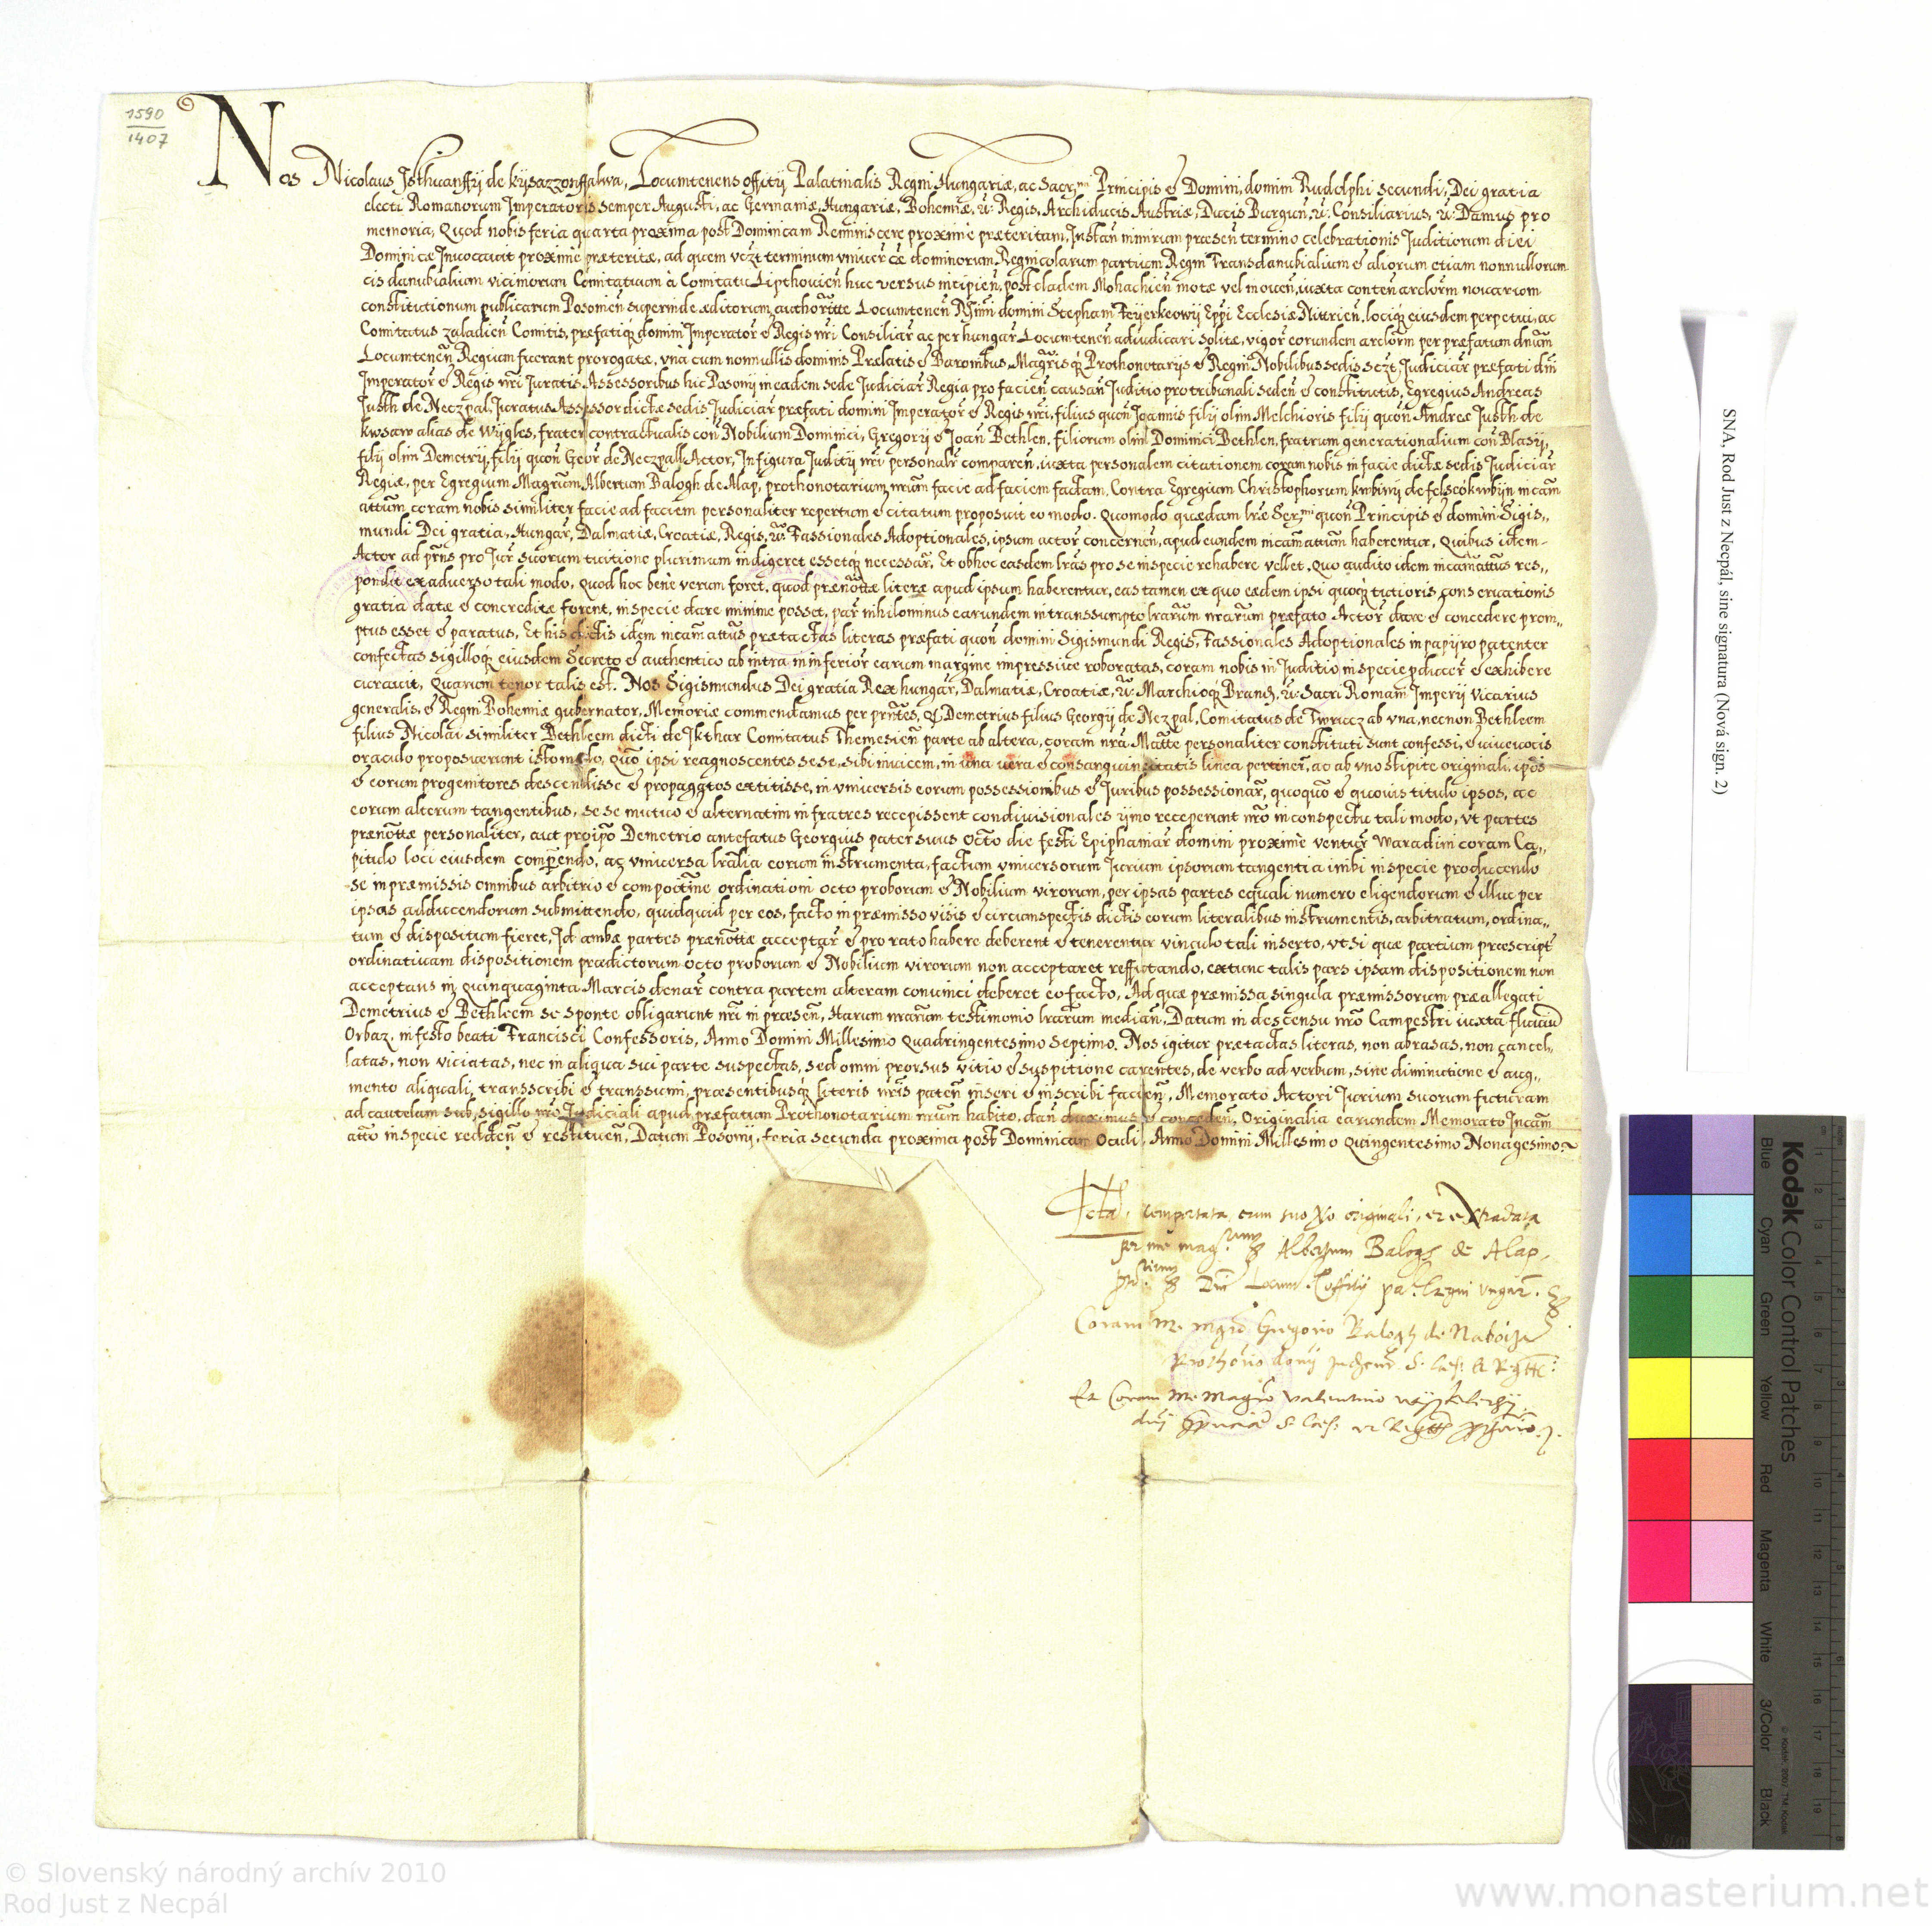 1590
1407
Nos Nicolaus Isthuanffÿ de kÿsazzonffalwa, Locumtenens offitÿ Palatinalis Regni Hungariæ, ac Sacr.mi Principis & Domini, domini Rudolphi secundi, Dei gratia
electi Romanorum Imperatoris semper Augusti, ac Germaniæ, Hungariæ, Bohemiæ, &c. Regis, Archiducis Austriæ, Ducis Burgun̄, &c. Consiliarius, &c. Damus pro
memoria, Quod nobis feria quarta proxima post Dominicam Reminiscere proxime præteritam, Instan̄ nimirum præsen̄ termino celebrationis Juditiorum diei
Dominicæ Inuocauit proximè præteritæ, ad quem vczt terminum vniuer cæ dominorum Regnicolarum partium Regni Transdanubialium & aliorum etiam nonnullorum
cis danubialium vicinorum Comitatuum à Comitatu Lipthouien̄ huc versus incipien̄, post cladem Mohachien̄ motæ vel mouen̄, iuxta conten̄ arclōrm nouarum
constitutionum publicarum Posonien̄ superinde æditorum, authoritte Locumtenen̄ Rmi domini Stephani Feÿerkeowÿ Eppi Ecclesiæ Nittrien̄, lociq; eiusdem perpetui, ac
Comitatus zaladien̄ Comitis, prefatiq; domini Imperator̄ & Regis nri Consiliar̄ ac per hungar̄ Locumtenen̄ adiudicari solitæ, vigor̄ eorundem arclōrm per præfatum dnūm
Locumtenen̄ Regium fuerant prorogatæ, vna cum nonnullis dominis Prælatis & Baronibus, Magrisq; Prothonotarÿs & Regni Nobilibus sedis sczt Judiciar̄ præfati dni
Imperator̄ & Regis nri Iuratis Assessoribus hic Posonÿ in eadem sede Judiciar̄ Regia pro facien̄ causar̄ Juditio pro tribunali seden̄ & constitutis, Egregius Andreas
Justh de Neczpal, Juratus Assessor dictæ sedis Judiciar̄ prefati domini Imperator̄ & Regis nri, filius quon̄ Joannis filÿ olim Melchioris filÿ quōn Andreæ Justh de
kwsaw alias de Wÿgles, frater contractualis con̄ Nobilium Dominici, Gregorÿ & Joan̄ Bethlen, filiorum olim Dominici Bethlen, fratrum generationalium con̄ Blasÿ,
filÿ olim Demetrÿ, filÿ quon̄ Geor̄ de Neczpall Actor, In figura Juditÿ nri personalr̄ comparen̄, iuxta personalem citationem coram nobis in facie dictæ sedis Judiciar̄
Regiæ, per Egregium Magrūm Albertum Balogh de Alap, prothonotarium nrum facie ad faciem factam, Contra Egregium Christophorum kwbinÿ de felseókwbÿn incam
attum coram nobis similiter facie ad faciem personaliter repertum & citatum proposuit eo modo. Quomodo quædam lræ Ser.mi quon̄ Principis & domini Sigis„
mundi Dei gratia, Hungar̄, Dalmatiæ, Croatiæ, Regis, &c. Fassionales Adoptionales, ipsum actor̄ concernen̄, apud eundem incamattum haberentur, Quibus idem
Actor ad prñs pro Jur̄ suorum tuitione plurimum indigeret essetq; necessar̄, Et ob hoc easdem lras pro se in specie rehabere vellet, Quo audito idem incamattus res„
pondit ex aduerso tali modo, Quod hoc benè verum foret, quod prænottæ literæ apud ipsum haberentur, eas tamen ex quo eædem ipsi quoq; tutioris conseruationis
gratia datæ & concreditæ forent, in specie dare minime posset, par̄ nihilominus earundem in transsumpto lrarum nrarum præfato Actor̄ dare & concedere prom„
ptus esset & paratus, Et his dictis idem incamattus prætactas literas præfati quon̄ domini Sigismundi Regis, Fassionales Adoptionales in papÿro patenter
confectas sigilloq; eiusdem Secreto & authentico ab intra in inferior̄ earum margine impressiue roboratas, coram nobis in Juditio in specie pducer̄ & exhibere
curauit, Quarum tenor talis est. Nos Sigismundus Dei gratia Rex hungar̄, Dalmatiæ, Croatiæ, &c. Marchioq; Brand, &c. Sacri Romani Imperÿ Vicarius
generalis, & Regni Bohemiæ gubernator, Memoriæ commendamus per pntes, Q Demetrius filius Georgÿ de Nezpal, Comitatus de Twrucz ab vna, necnon Bethleem
filius Nicolai similiter Bethleem dicti de Jkthar Comitatus Themesien̄ parte ab altera, coram nra Matte personaliter constituti sunt confessi, & viuæuocis
oraculo proposuerunt isto modo, Quo ipsi reagnoscentes sese, sibi inuicem, in vna vera & consanguinitatis linea pertiner̄, ac ab vno stipite originali ipos
& eorum progenitores descendisse & propaggtos extitisse, in vniuersis eorum possessionibus & Juribus possessionar̄, quoquo & quouis titulo ipsos, ac
eorum alterum tangentibus, sese mutuo & alternatim in fratres recepissent condiuisionales ÿmo receperunt nro in conspectu tali modo, vt partes
prænottæ personaliter, aut pro ipo Demetrio antefatus Georgius pater suus octo die festi Epiphaniar̄ domini proximè ventur̄ Waradini coram Ca„
pitulo loci eiusdem comparendo, ac vniuersa lralia eorum instrumenta, factum vniuersorum Jurium ipsorum tangentia inibi in specie producendo
se in præmissis omnibus arbitrio & compoctne ordinationi octo proborum & Nobilium virorum, per ipsas partes equali numero eligendorum & illuc per
ipsas adducendorum submittendo, quidquid per eos, facto in præmisso visis & circumspectis dictis eorum literalibus instrumentis, arbitratum, ordina„
tum & dispositum fieret, Id ambæ partes prænottæ acceptar̄ & pro rato habere deberent & tenerentur vinculo tali inserto, vt si quæ partium præscript̄
ordinatiuam dispositionem prædictorum octo proborum & Nobilium virorum non acceptaret reffutando, extunc talis pars ipsam dispositionem non
acceptans in Quinquaginta Marcis denar̄ contra partem alteram conuinci deberet eo facto, Ad quæ præmissa singula præmissorum præallegati
Demetrius & Bethleem se sponte obligarunt nri in præsen̄, Harum nrarum testimonio lrarum median̄, Datum in descensu nro Campestri iuxta fluuium
Orbaz, in festo beati Francisci Confessoris, Anno Domini Millesimo Quadringentesimo Septimo. Nos igitur prætactas literas, non abrasas, non cancel„
latas, non viciatas, nec in aliqua sui parte suspectas, sed omni prorsus vitio & suspitione carentes, de verbo ad verbum, sine diminutione & aug„
mento aliquali, transscribi & transsumi, præsentibusq; literis nris paten̄ inseri & inscribi facien̄, Memorato Actori Jurium suorum futuram
ad cautelam sub sigillo nro Judiciali apud præfatum Prothonotarium nrum habito, dan̄ duximus & conceden̄, Originalia earundem Memorato Incam
atto in specie redden̄ & restituen̄, Datum Posonÿ, feria secunda proxima post Dominicam Oculi, Anno Domini Millesimo Quingentesimo Nonagesimo.
Lecta, comportata cum suo vo originali, et extradata
per me mag.rum Albertum Balogh de Alap,
Dni Locum. offitÿ pa. Regni Ungar.
Coram me mgro Gregorio Balogh de
Et Coram me Magro Valentino
SNA, Rod Just z Necpál, sine signatura (Nová sign. 2)
Kodak Color Control Patches
Blue Cyan Green Yellow Red Magenta White 3/Color Black
© Slovenský národný archív 2010
Rod Just z Necpál
www.monasterium.net